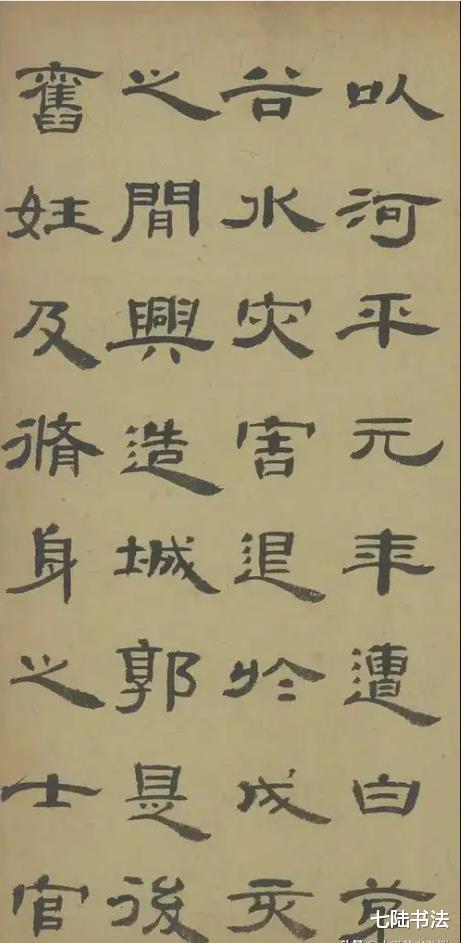 以河平元年遭白茅
谷水灾害退於戌亥
之間興造城郭是後
舊姓及脩身之士官
七陆书法